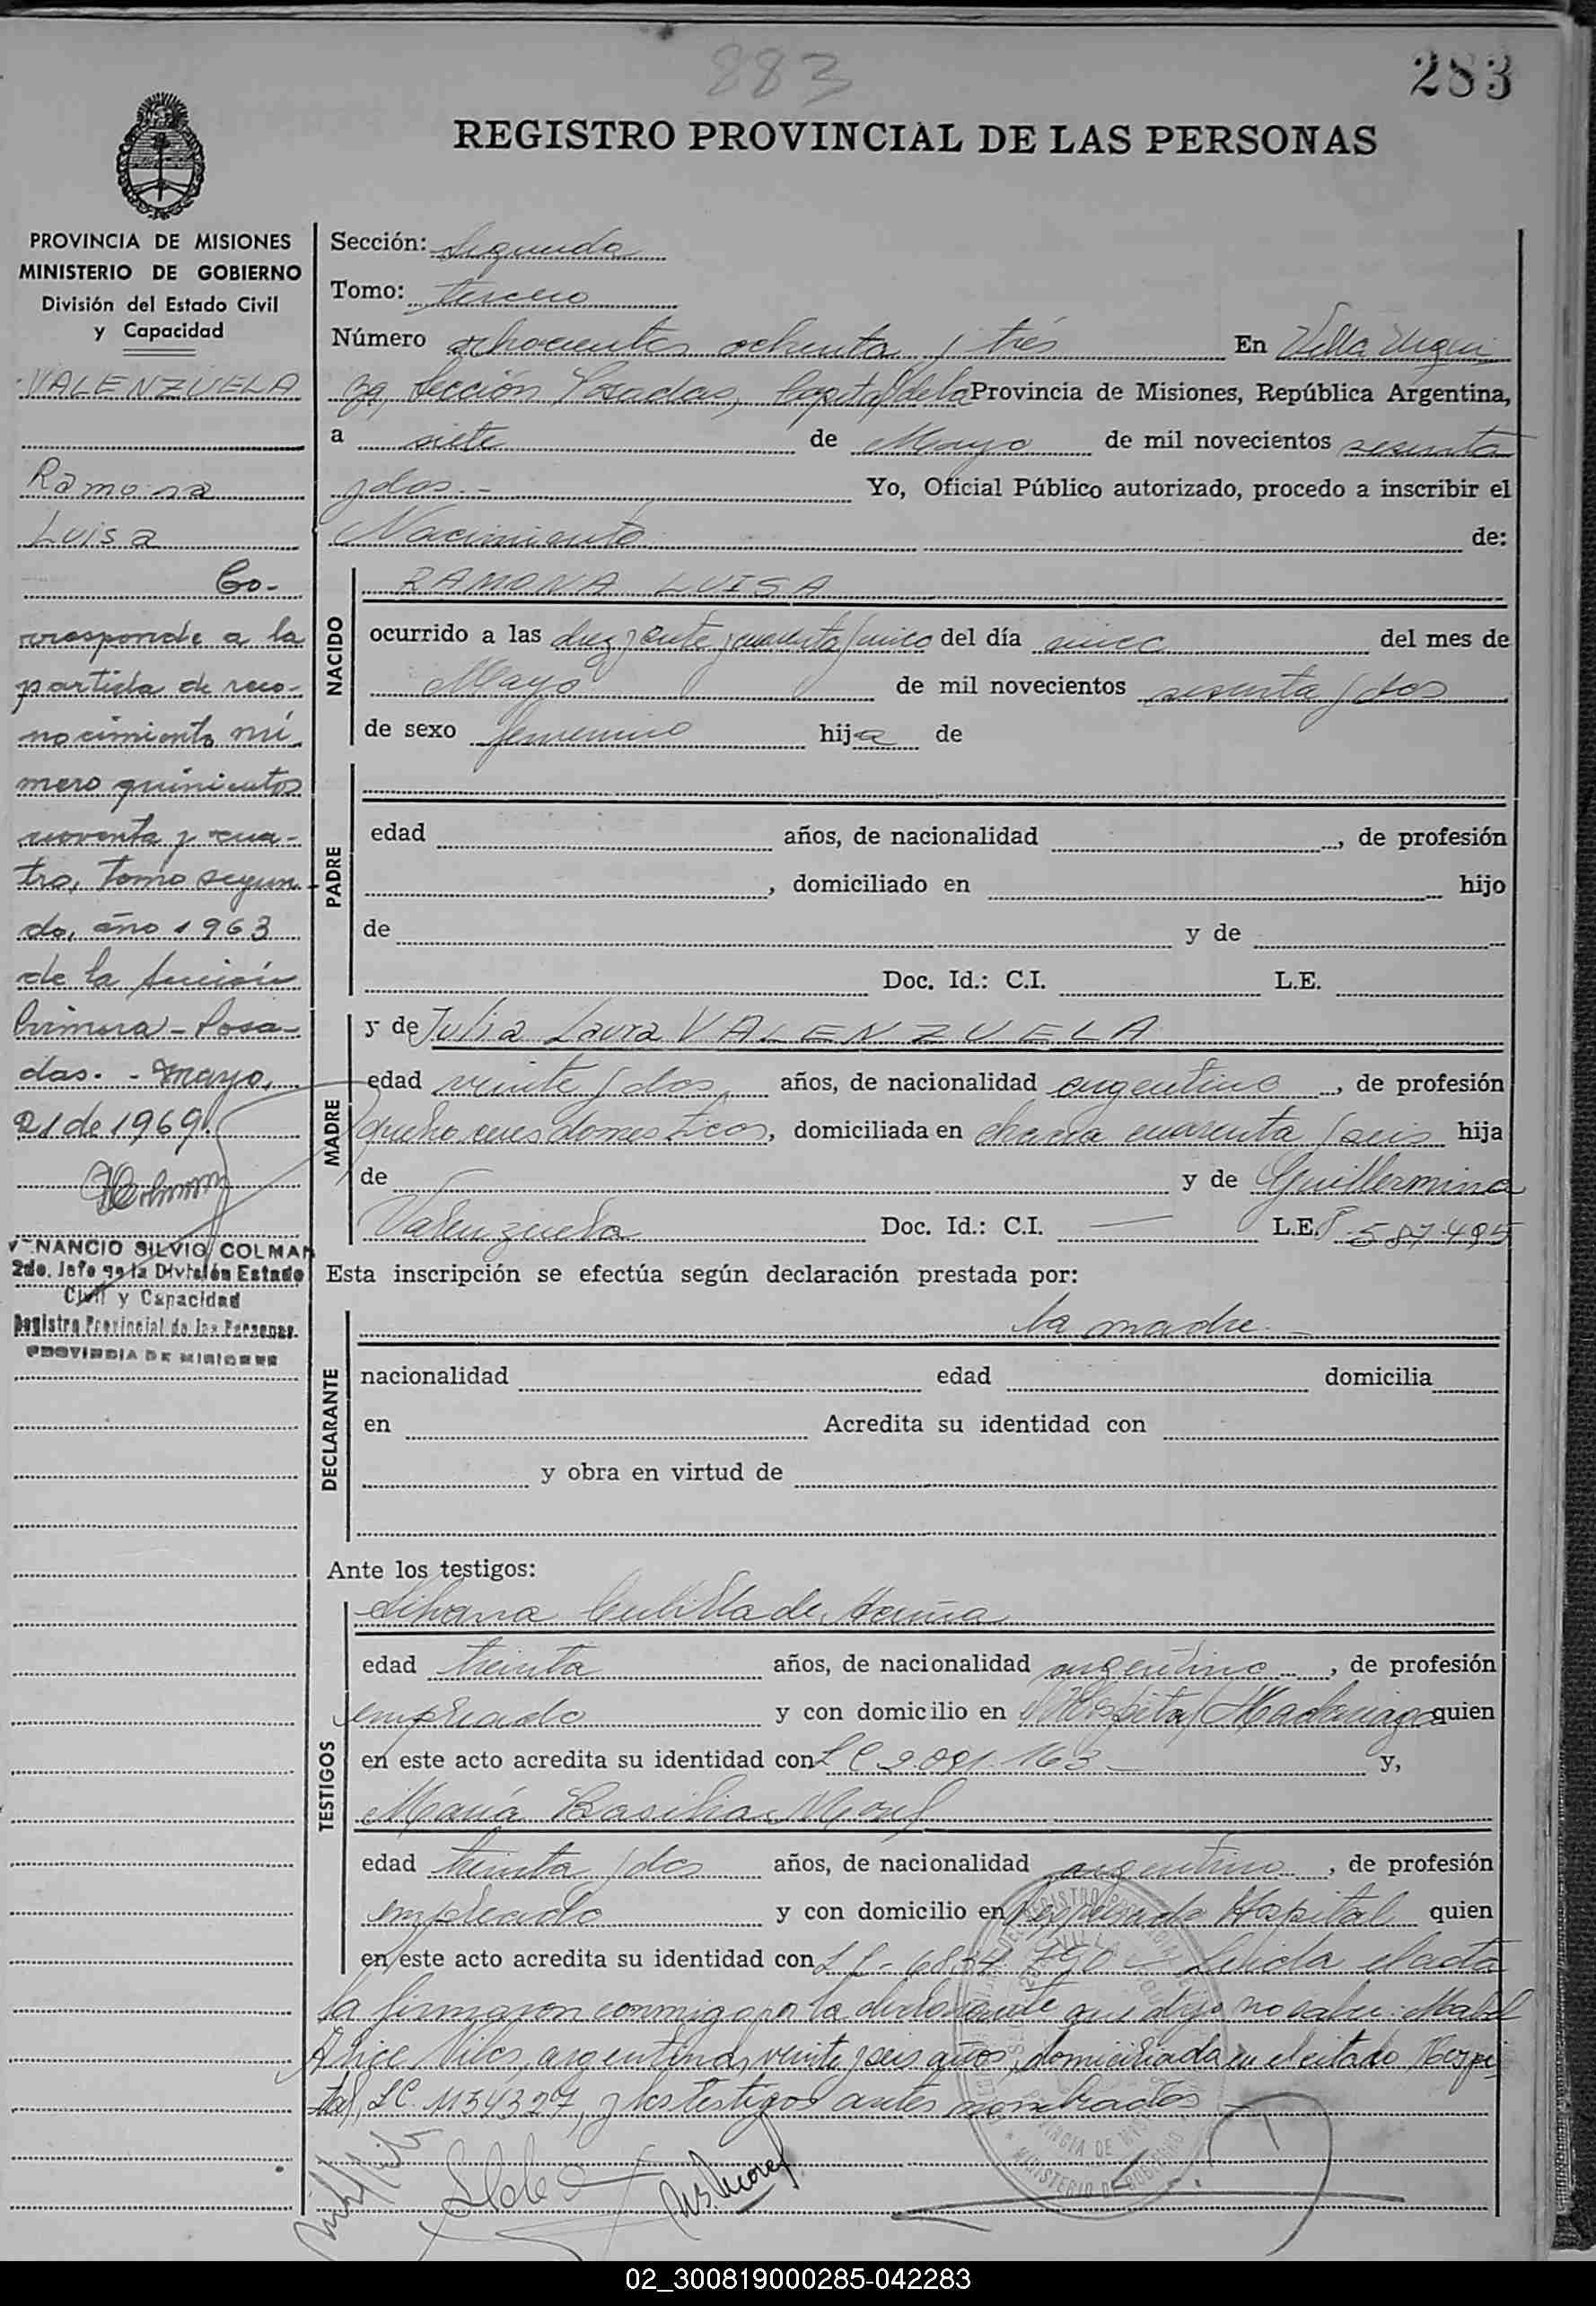 883
283
REGISTRO PROVINCIAL DE LAS PERSONAS
PROVINCIA DE MISIONES
MINISTERIO DE GOBIERNO
División del Estado Civil
y Capacidad
VALENZUELA
Ramona
Luisa
Co-
rresponde a la
partida de reco-
nocimiento nú
mero quinientos
noventa y cua-
tro, Tomo segun
do, año 1963
de la Sección
Primera - Posa-
das. - Mayo,
21 de 1969.
VENANCIO SILVIO COLMAN
2do. Jefe de la División Estado
Civil y Capacidad
Registro Provincial de las Personas
PROVINCIA DE MISIONES
Sección: Segunda
Tomo: tercero
Número ochocientos ochenta y trés En Villa Urqui
za, Sección Posadas, Capital de la Provincia de Misiones, República Argentina,
a siete de Mayo de mil novecientos sesenta
y dos.- Yo, Oficial Público autorizado, procedo a inscribir el
Nacimiento de:
NACIDO
RAMONA LUISA
ocurrido a las diez y veinte y cuarenta y cinco del día del mes de
Mayo de mil novecientos sesenta y dos
de sexo femenino hija de
PADRE
edad años, de nacionalidad , de profesión
, domiciliado en hijo
de y de
Doc. Id.: C.I. L.E.
MADRE
y de Julia Laura VALENZUELA
edad veinte y dos años, de nacionalidad argentina, de profesión
quehaceres domesticos, domiciliada en chacra cuarenta y seis hija
de y de Guillermina
Valenzuela Doc. Id.: C.I. — L.E. 587.495
Esta inscripción se efectúa según declaración prestada por:
DECLARANTE
la madre.-
nacionalidad edad domicilia
en Acredita su identidad con
y obra en virtud de
Ante los testigos:
TESTIGOS
de
edad treinta años, de nacionalidad argentina, de profesión
empleada y con domicilio en Hospital Madariaga quien
en este acto acredita su identidad con L C 2.091.163 y,
María Basilia Morel
edad treinta y dos años, de nacionalidad argentina, de profesión
empleada y con domicilio en Hospital quien
en este acto acredita su identidad con Leída el acta
la firmaron conmigo por la declarante que dijo no saber: Mabel
Alice Vilos, argentina, veinte y seis años, domiciliada en el citado Hospi
tal, LC. 1134327, y los testigos antes nombrados
02_300819000285-042283